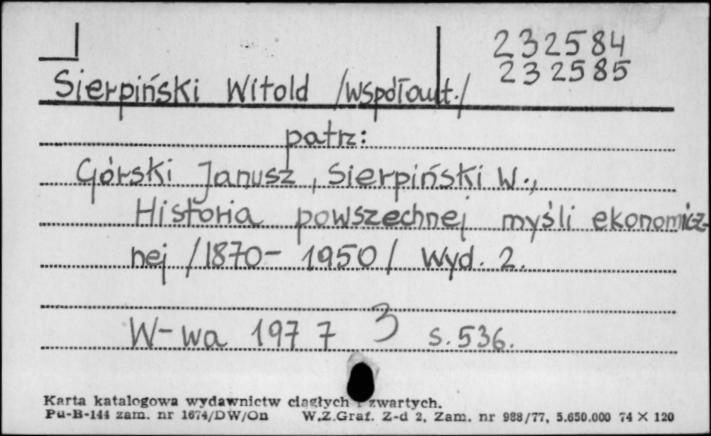 232584
232585
Sierpiński Witold /współaut./
patrz:
Górski Janusz, Sierpiński W.,
Historia powszechnej myśli ekonomicz-
nej /1870- 1950/ Wyd. 2.
W-wa 1977 3 s. 536.
Karta katalogowa wydawnictw ciągłych i zwartych.
Pu-B-144 zam. nr 1674/DW/On W.Z.Graf. Z-d 2, Zam. nr 988/77, 5.650.000 74 X 120